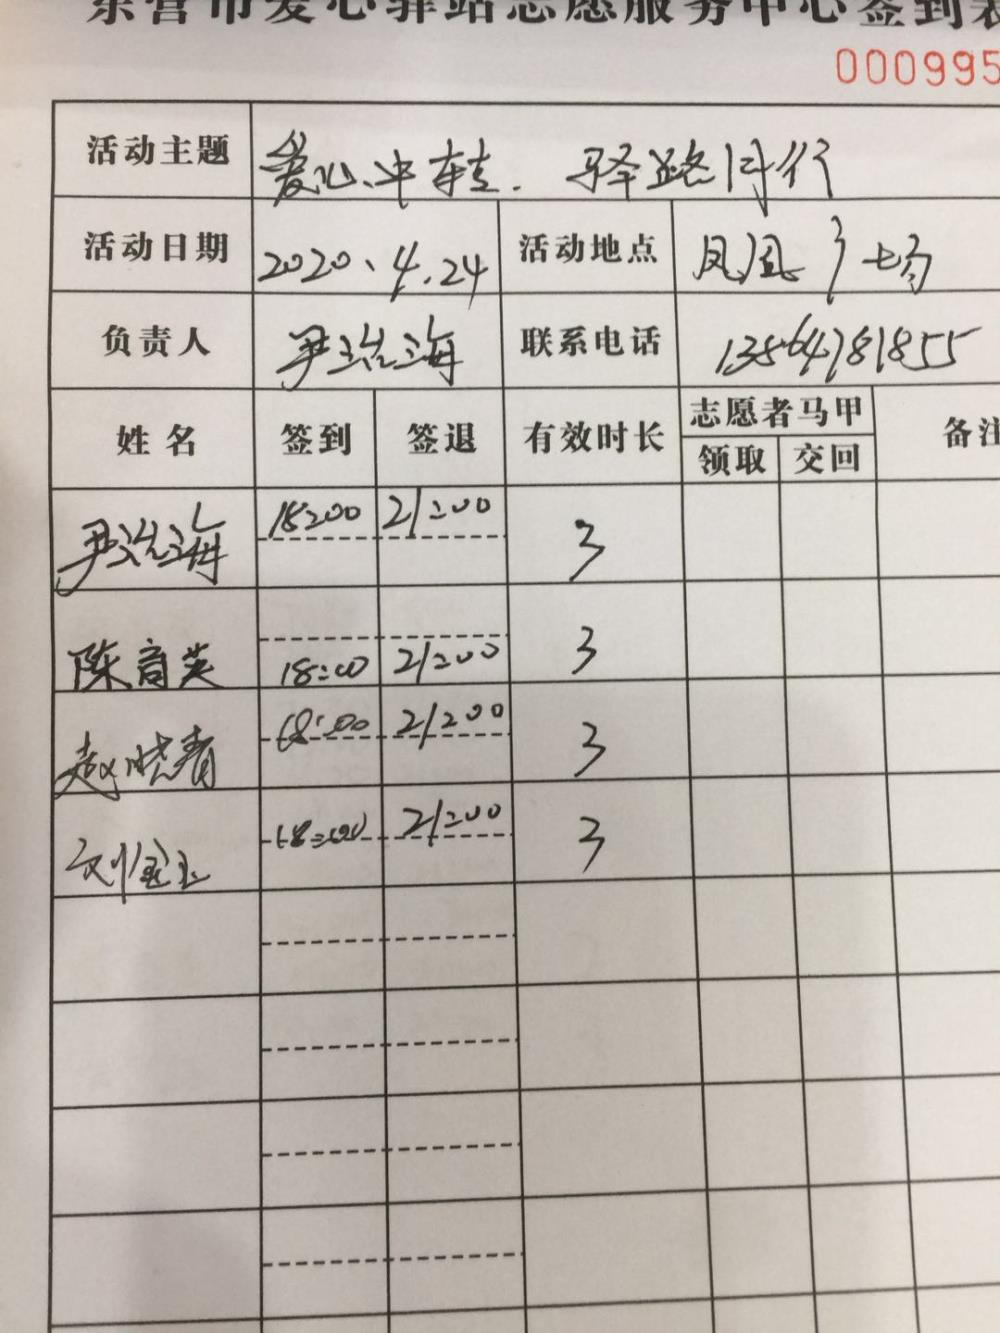 东营市爱心驿站志愿服务中心签到表
000995
活动主题 爱心中转. 驿路同行
活动日期 2020、4.24 活动地点 凤凰广场
负责人 尹浩海 联系电话 13564781855
姓名 签到 签退 有效时长 志愿者马甲 备注
领取 交回
尹浩海 18:00 21:00 3
陈育英 18:00 21:00 3
赵晓青 18:00 21:00 3
刘宝玉 18:00 21:00 3